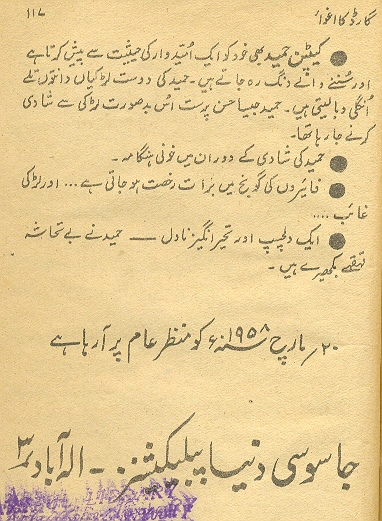 گارڈ کا اغوا ۱۱۷
● کیپٹن حمید بھی خود کو ایک اُمیدوار کی حیثیت سے پیش کرتا ہے
اور سُننے والے دنگ رہ جاتے ہیں۔ حمید کی دوست لڑکیاں دانتوں تلے
اُنگلی دبا لیتی ہیں۔ حمید جیسا حسن پرست اس بدصورت لڑکی سے شادی
کرنے جا رہا تھا۔
● حمید کی شادی کے دوران میں خونی ہنگامہ۔
● فائیروں کی گونج میں برات رخصت ہو جاتی ہے ... اور لڑکی
غائب ....
● ایک دلچسپ اور تحیر انگیز ناول — حمید نے بے تحاشہ
قہقہے بکھیرے ہیں۔
۲۰؍ مارچ ۱۹۵۸ء کو منظرِ عام پر آ رہا ہے
جاسوسی دنیا پبلیکیشنز ۔ الہ آباد ۳
LIBRARY